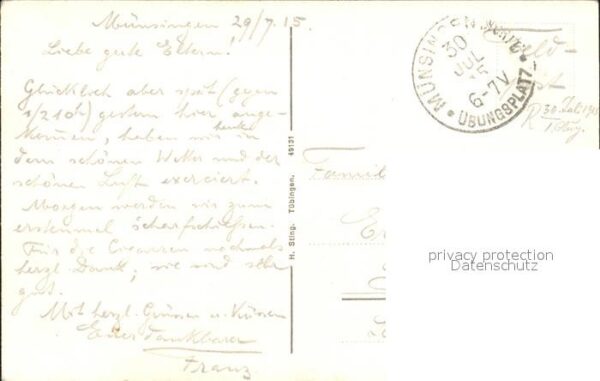 Münsingen 29/7.15.
Liebe gute Eltern!
Glücklich aber spät (gegen
1/2 10h) gestern hier ange-
kommen, haben wir in
heute
dem schönen Wetter und der
schönen Luft exerciert.
Morgen werden wir zum
erstenmal scharfschießen.
Für die Cigarren nochmals
herzl. Dank, sie sind sehr
gut.
Mit herzl. Grüssen u. Küssen
Euer dankbarer
Franz.
H. Sting, Tübingen. 49131
MÜNSINGEN
30
JUL
15
6-7V.
ÜBUNGSPLATZ
Feld-
post
R 30. Juli 1915
Famil
privacy protection
Datenschutz